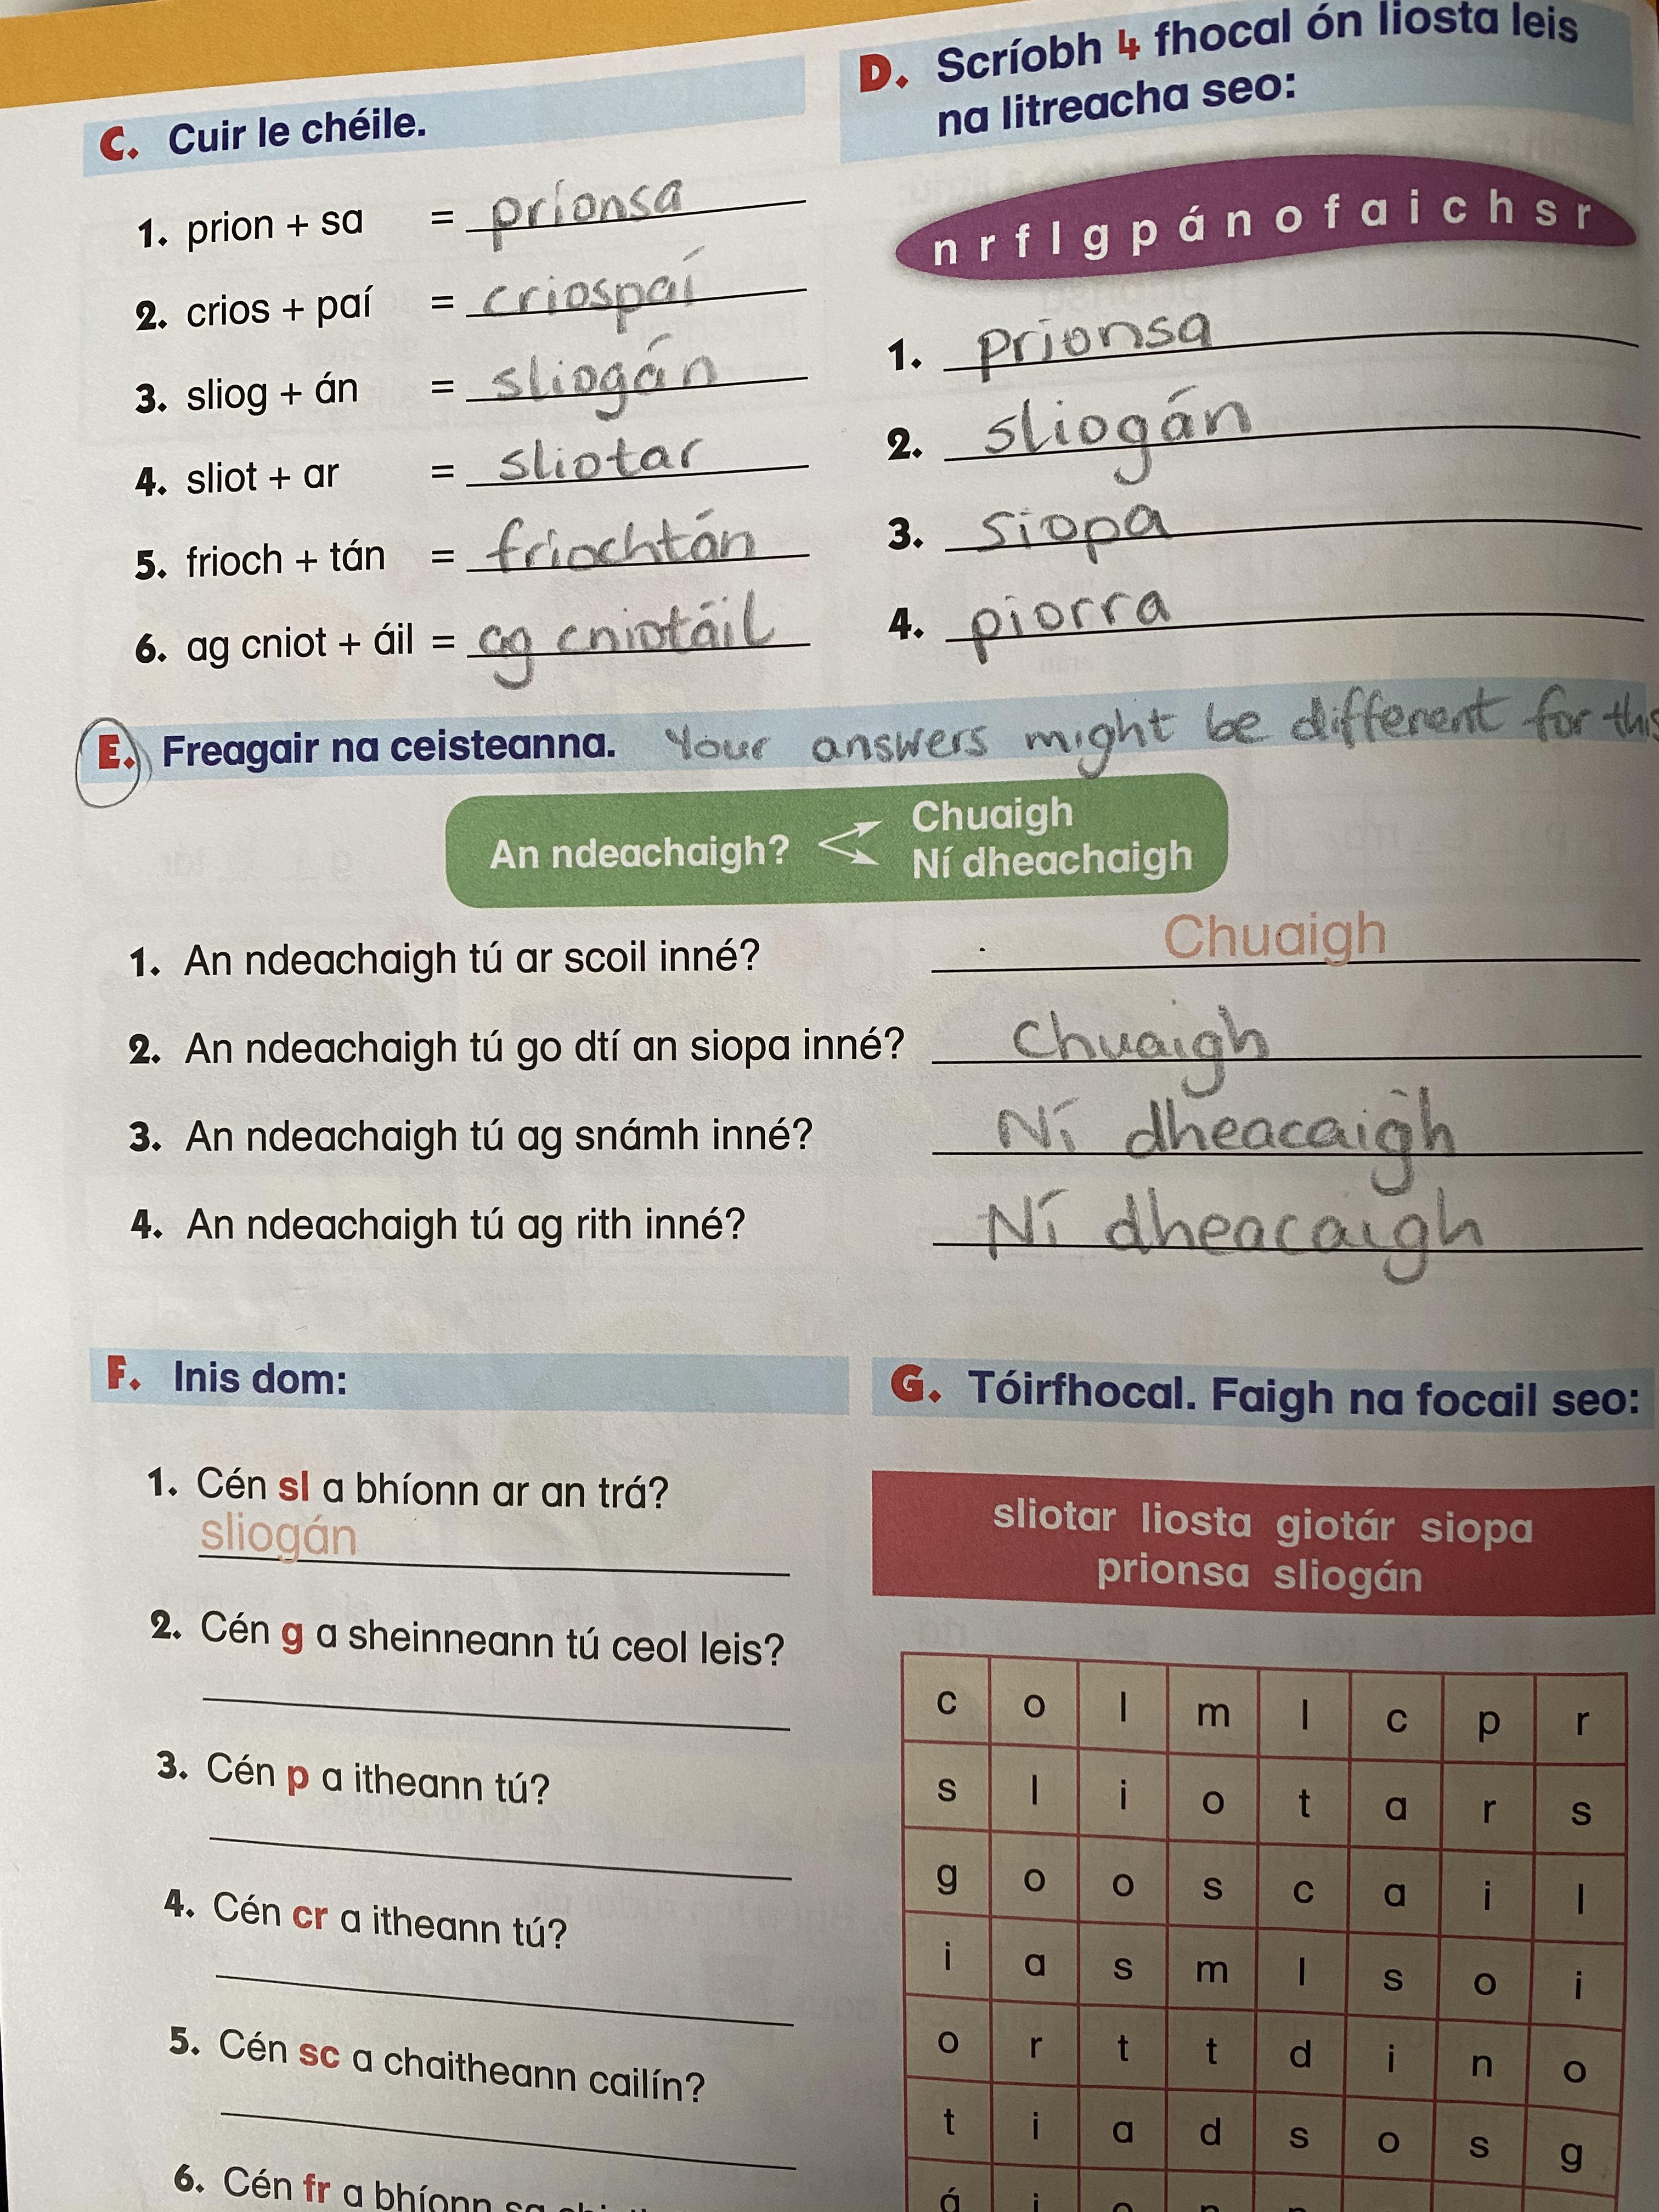 C. Cuir le chéile.
1. prion + sa = prionsa
2. crios + paí = criospaí
3. sliog + án = sliogán
4. sliot + ar = sliotar
5. frioch + tán = friochtán
6. ag cniot + áil = ag cniotáil
D. Scríobh 4 fhocal ón liosta leis
na litreacha seo:
n r f l g p á n o f a i c h s r
1. prionsa
2. sliogán
3. siopa
4. piorra
E. Freagair na ceisteanna. Your answers might be different for this
An ndeachaigh? Chuaigh
Ní dheachaigh
1. An ndeachaigh tú ar scoil inné? Chuaigh
2. An ndeachaigh tú go dtí an siopa inné? Chuaigh
3. An ndeachaigh tú ag snámh inné? Ní dheacaigh
4. An ndeachaigh tú ag rith inné? Ní dheacaigh
F. Inis dom:
1. Cén sl a bhíonn ar an trá?
sliogán
2. Cén g a sheinneann tú ceol leis?
3. Cén p a itheann tú?
4. Cén cr a itheann tú?
5. Cén sc a chaitheann cailín?
6. Cén fr a bhíonn sa
G. Tóirfhocal. Faigh na focail seo:
sliotar liosta giotár siopa
prionsa sliogán
c o l m l c p r
s l i o t a r s
g o o s c a i l
i a s m l s o i
o r t t d i n o
t i a d s o s g
á i o